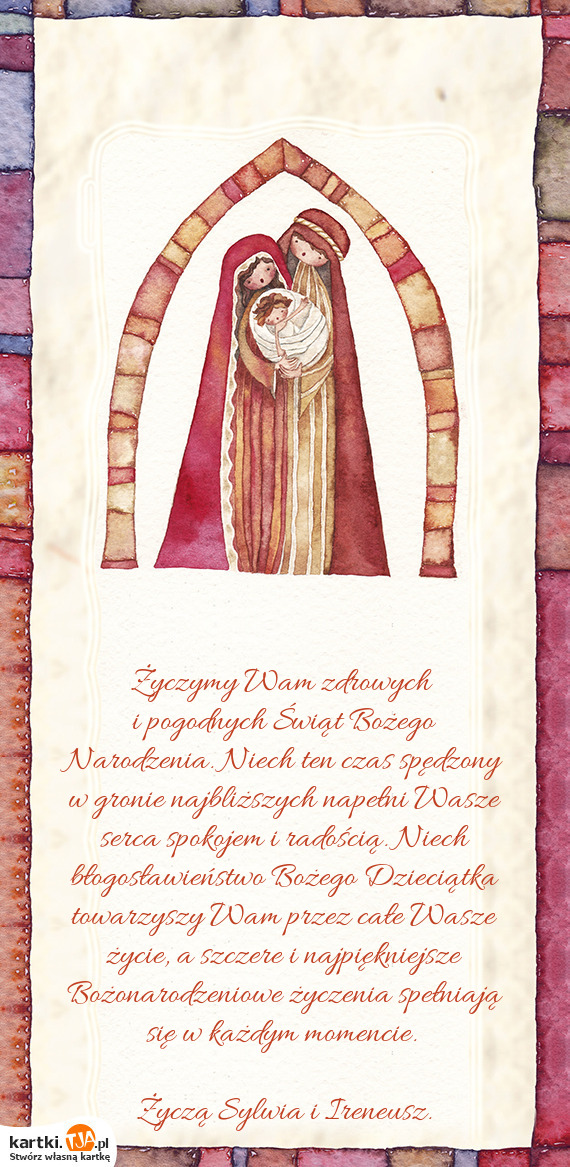 Życzymy Wam zdrowych
i pogodnych Świąt Bożego
Narodzenia. Niech ten czas spędzony
w gronie najbliższych napełni Wasze
serca spokojem i radością. Niech
błogosławieństwo Bożego Dzieciątka
towarzyszy Wam przez całe Wasze
życie, a szczere i najpiękniejsze
Bożonarodzeniowe życzenia spełniają
się w każdym momencie.
Życzą Sylwia i Ireneusz.
kartki.TJA.pl
Stwórz własną kartkę